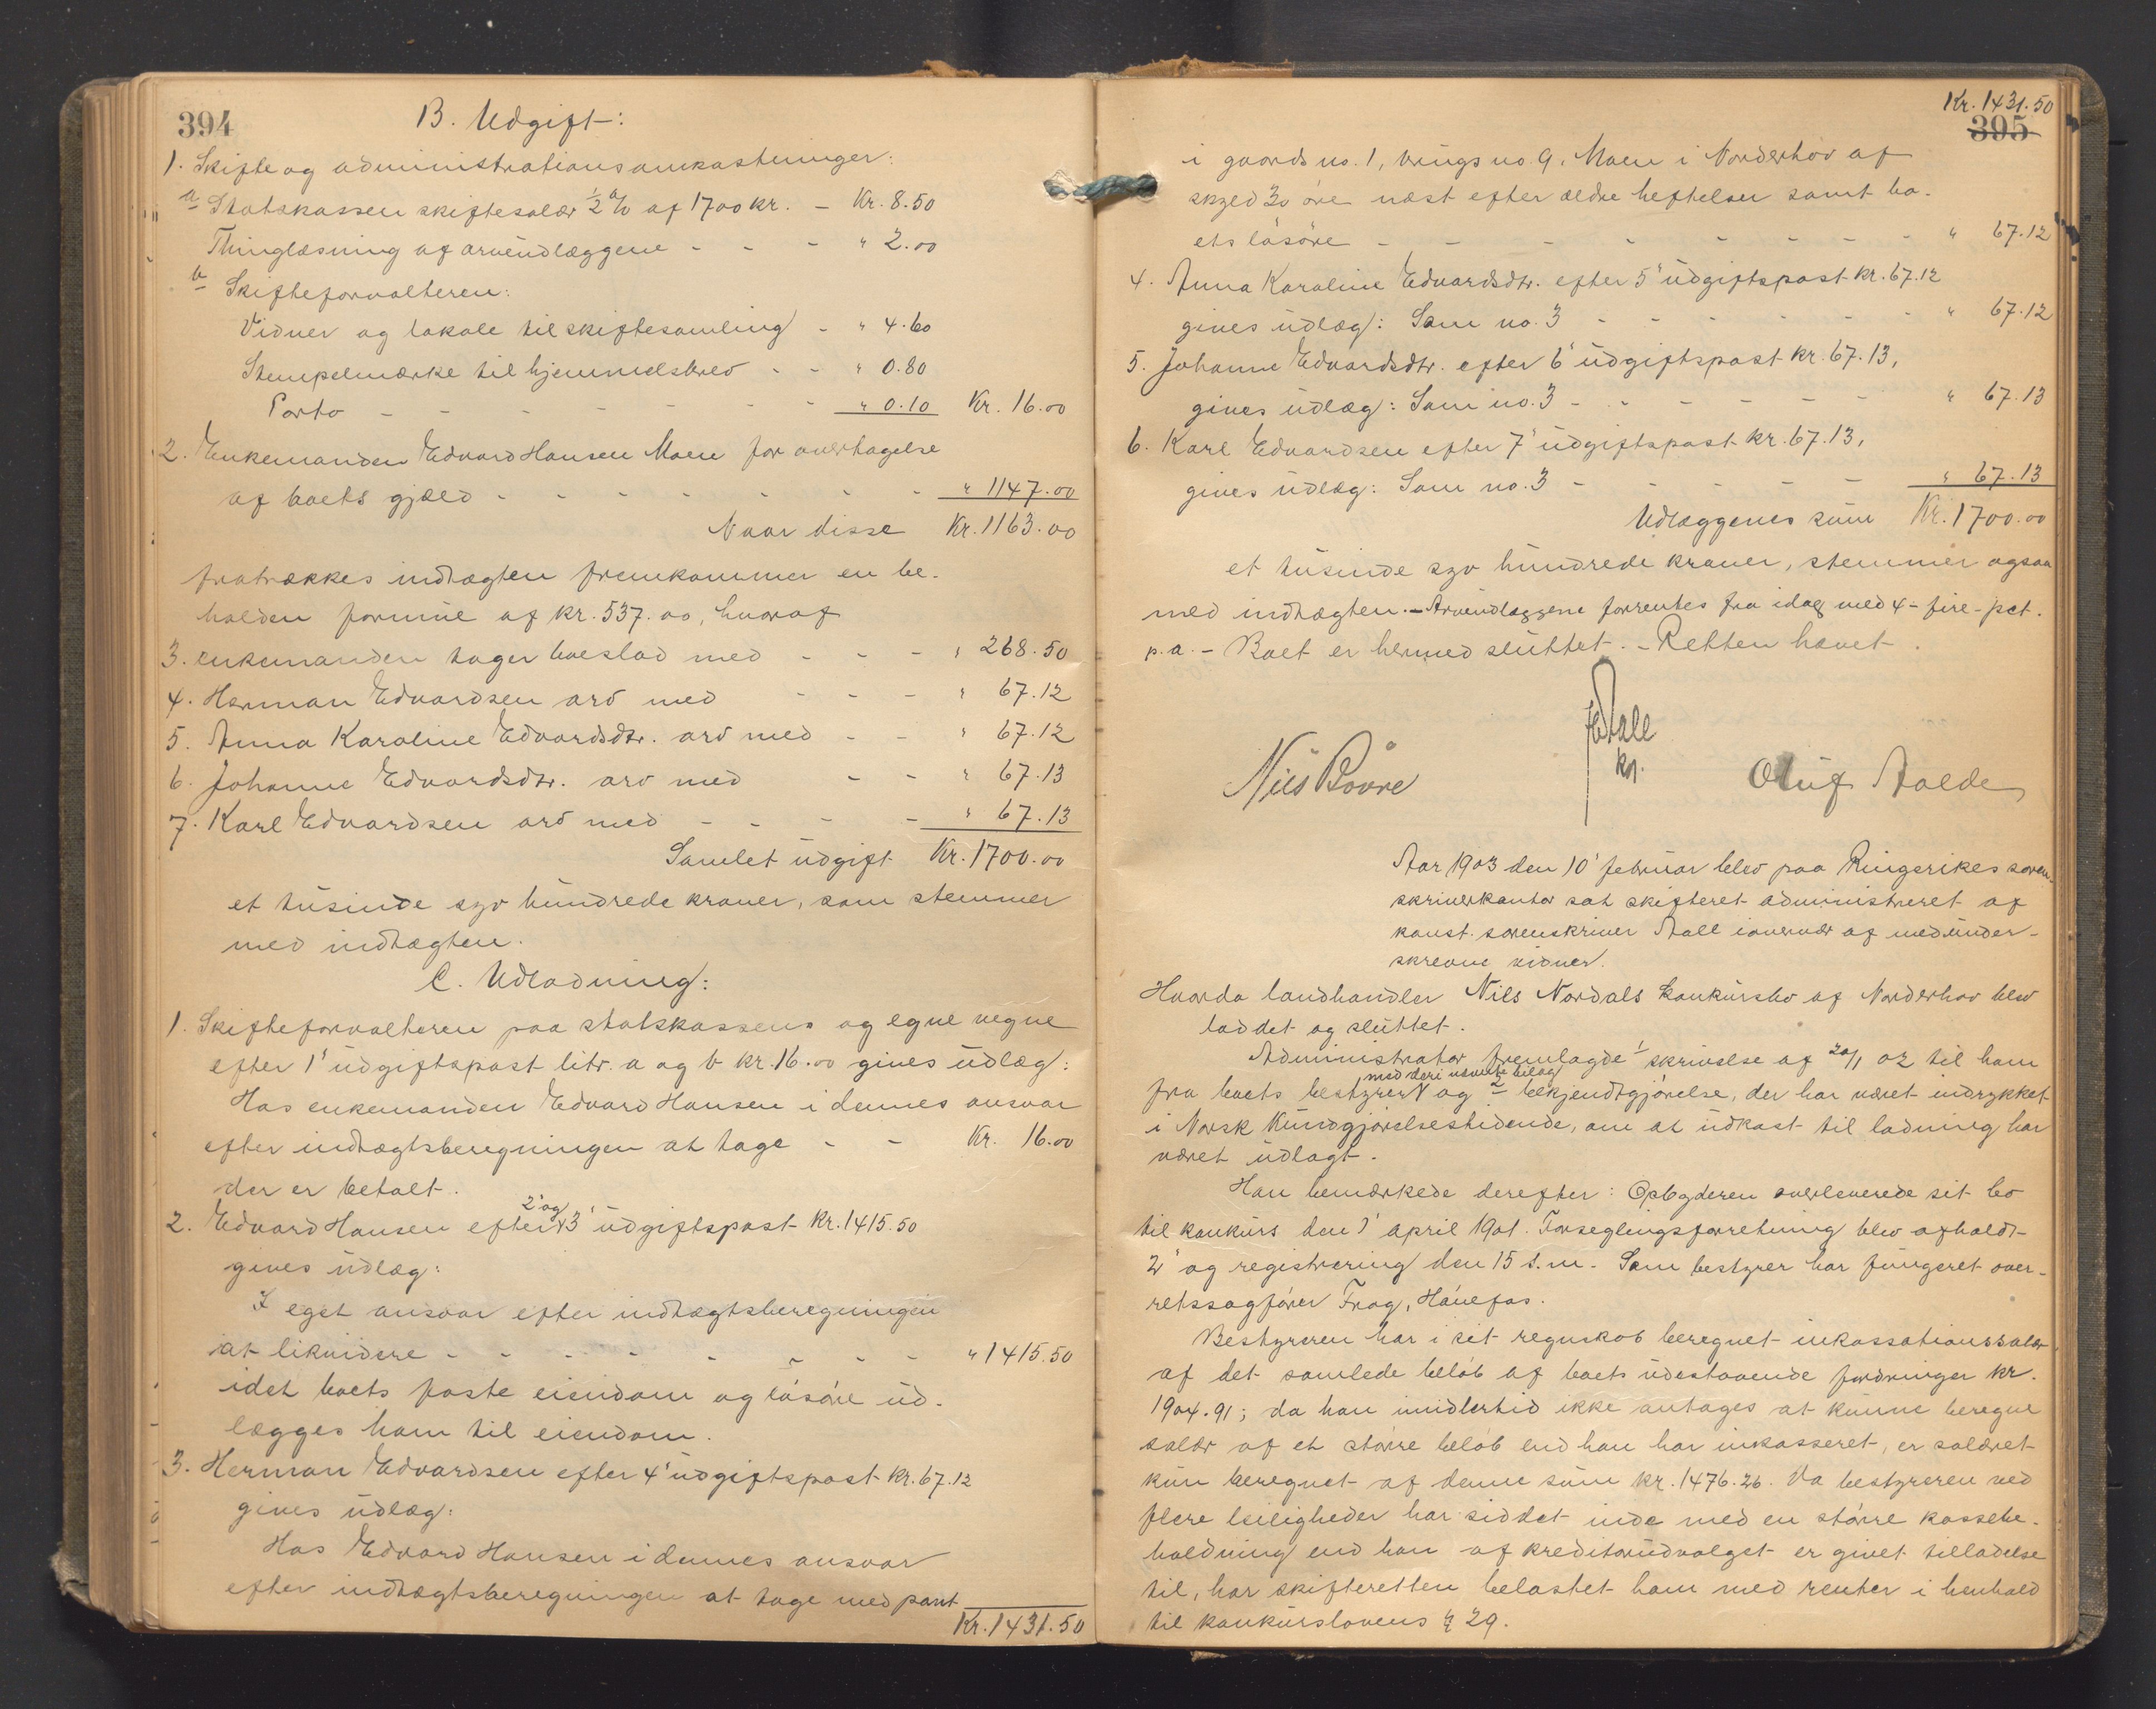 394
B. Udgift:
1. Skifte og administrationsomkostninger:
a Statskassen skiftesalær ½ % af 1700 kr. - Kr. 8.50
Thinglæsning af arveudlæggene - - - " 2.00
b Skifteforvalteren:
Vidner og lokale til skiftesamling - " 4.60
Stempelmærke til hjemmelsbrev - - " 0.80
Porto - - - - - - - " 0.10 Kr. 16.00
2. Enkemanden Edvard Hansen Moen for overtagelse
af boets gjæld - - - - - - - " 1147.00
Naar disse Kr. 1163.00
fratrækkes indtægten fremkommer en be-
holden formue af kr. 537.00, hvoraf
3. enkemanden tager boeslod med - - - " 268.50
4. Herman Edvardsen arv med - - - " 67.12
5. Anna Karoline Edvardsdtr. arv med - - " 67.12
6. Johanne Edvardsdtr. arv med - - " 67.13
7. Karl Edvardsen arv med - - - - " 67.13
Samlet udgift Kr. 1700.00
et tusinde syv hundrede kroner, som stemmer
med indtægten.
C. Udlodning:
1. Skifteforvalteren paa statskassens og egne vegne
efter 1' udgiftspost litr. a og b kr. 16.00 gives udlæg:
Hos enkemanden Edvard Hansen i dennes ansvar
efter indtægtsberegningen at tage - - Kr. 16.00
der er betalt.
2. Edvard Hansen efter 2' og 3' udgiftspost kr. 1415.50
gives udlæg:
I eget ansvar efter indtægtsberegningen
at likvidere - - - - - - - - " 1415.50
idet boets faste eiendom og løsøre ud-
lægges ham til eiendom.
3. Herman Edvardsen efter 4' udgiftspost kr. 67.12
gives udlæg:
Hos Edvard Hansen i dennes ansvar
efter indtægtsberegningen at tage med pant
Kr. 1431.50
Kr. 1431.50
395
i gaards no. 1, brugs no. 9, Moen i Norderhov af
skyld 30 øre næst efter ældre heftelser samt bo-
ets løsøre - - - - - - - - " 67.12
4. Anna Karoline Edvardsdtr. efter 5' udgiftspost kr. 67.12
gives udlæg: Som no. 3 - - - - - - " 67.12
5. Johanne Edvardsdtr. efter 6' udgiftspost kr. 67.13,
gives udlæg: Som no. 3 - - - - - - " 67.13
6. Karl Edvardsen efter 7' udgiftspost kr. 67.13,
gives udlæg: Som no. 3 - - - - - " 67.13
Udlæggenes sum Kr. 1700.00
et tusinde syv hundrede kroner, stemmer ogsaa
med indtægten. - Arveudlæggene forrentes fra idag med 4 - fire - pct.
p.a. - Boet er hermed sluttet. - Retten hævet.
Aall
kst.
Nils Bovre
Oluf Aalde
Aar 1903 den 10' februar blev paa Ringerikes soren-
skriverkontor sat skifteret administreret af
konst. sorenskriver Aall i overvær af medunder-
skrevne vidner.
Hvorda landhandler Nils Nordals konkursbo af Norderhov blev
loddet og sluttet.
Administrator fremlagde 1 skrivelse af 20/1 02 til ham
fra boets bestyrer med deri nævnte bilag og 2 bekjendtgjørelse, der har været indrykket
i Norsk Kundgjørelsestidende, om at udkast til lodning har
været udlagt.
Han bemærkede derefter: Opbyderen overleverede sit bo
til konkurs den 1' april 1901. Forseglingsforretning blev afholdt
2' og registrering den 15 s.m. Som bestyrer har fungeret over-
retssagfører Frog, Hønefos.
Bestyreren har i sit regnskab beregnet inkassationssalær
af det samlede beløb af boets udestaaende fordringer kr.
1904.91; da han imidlertid ikke antages at kunne beregne
salær af et større beløb end han har inkasseret, er salæret
kun beregnet af denne sum kr. 1476.26. Da bestyreren ved
flere leiligheder har siddet inde med en større kassebe-
holdning end han af kreditorudvalget er givet tilladelse
til, har skifteretten belastet ham med renter i henhold
til konkurslovens § 29.